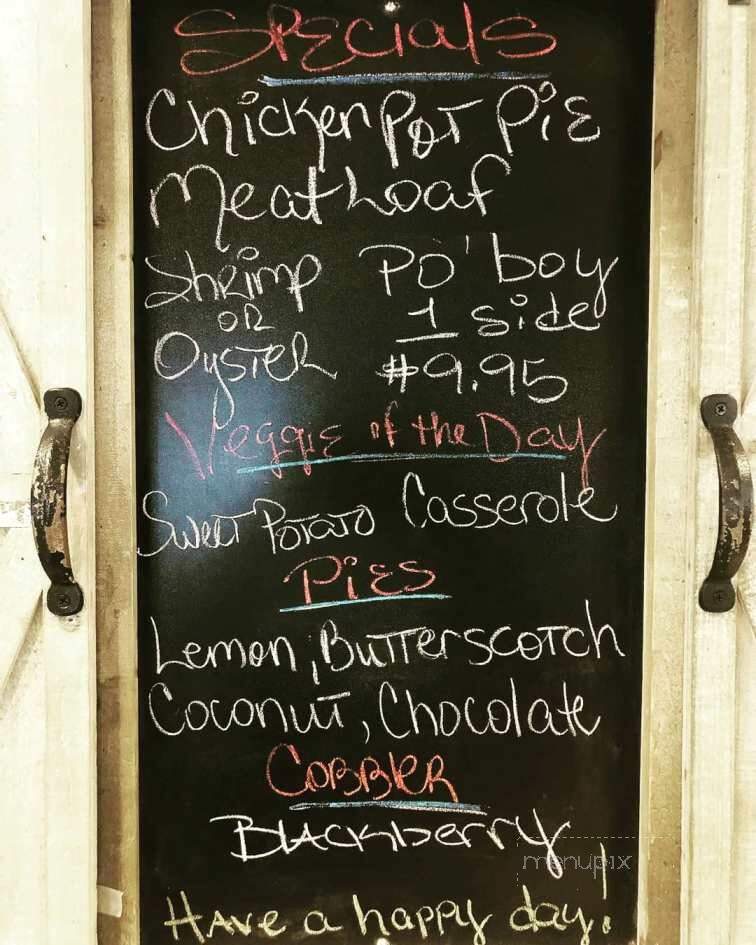 Specials
Chicken Pot Pie
Meat Loaf
Shrimp Po'boy
OR 1 side
Oyster $9.95
Veggie of the Day
Sweet Potato Casserole
Pies
Lemon, Butterscotch
Coconut, Chocolate
Cobbler
Blackberry
menupix
Have a happy day!